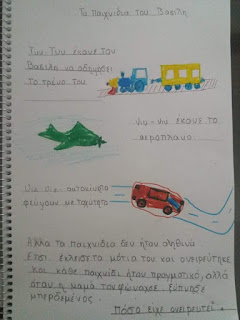 Τα παιχνίδια του Βασίλη
Τσαφ Τσουφ έκανε τον
Βασίλη να οδηγήσει
το τρένο του
νιμ-νιμ έκανε το
αεροπλανο
αυτοκίνητο
φεύγουν με ταχύτητα
Αλλα τα παιχνίδια δεν ήταν αληθινά
Ετσι έκλεισε τα μάτια του και ονειρεύτηκε
και κάθε παιχνίδι ήταν πραγματικό, αλλά
όταν η μαμά του φώναξε ξύπνησε
μπερδεμένος.
Πόσο είχε ονειρευτεί